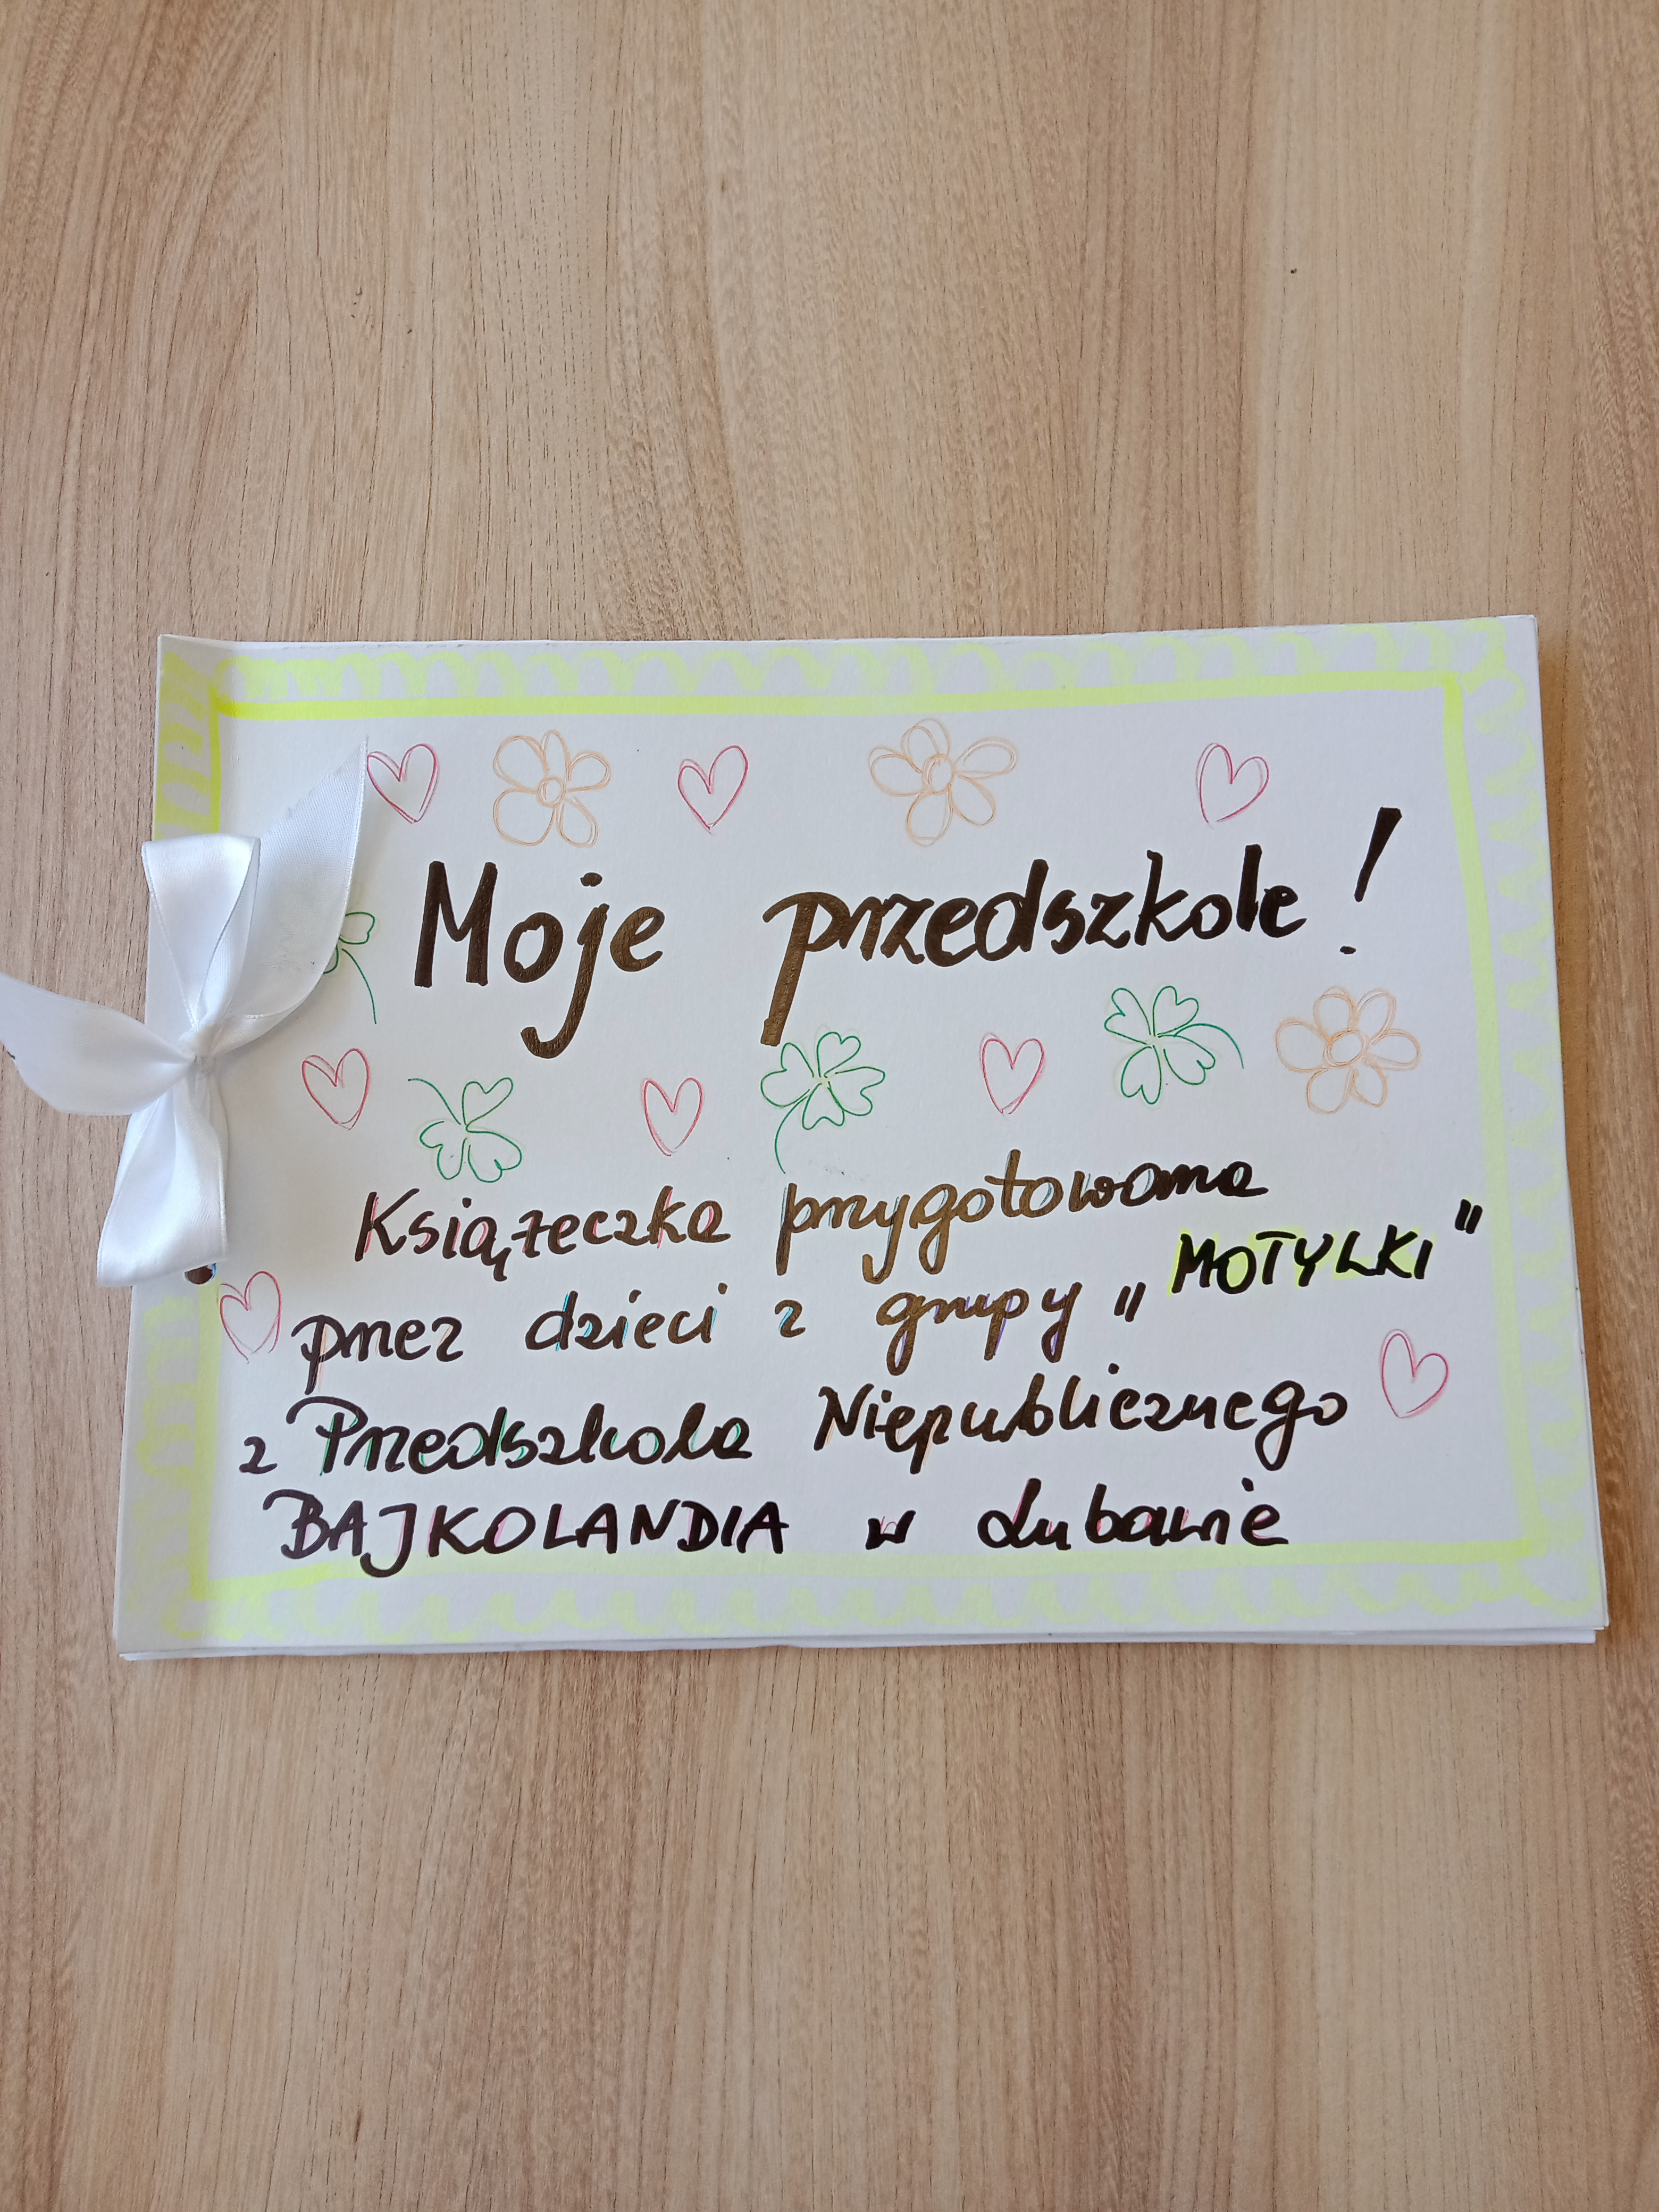 Moje przedszkole!
Książeczka przygotowana
przez dzieci z grupy „MOTYLKI"
z Przedszkola Niepublicznego
BAJKOLANDIA w Lubawie